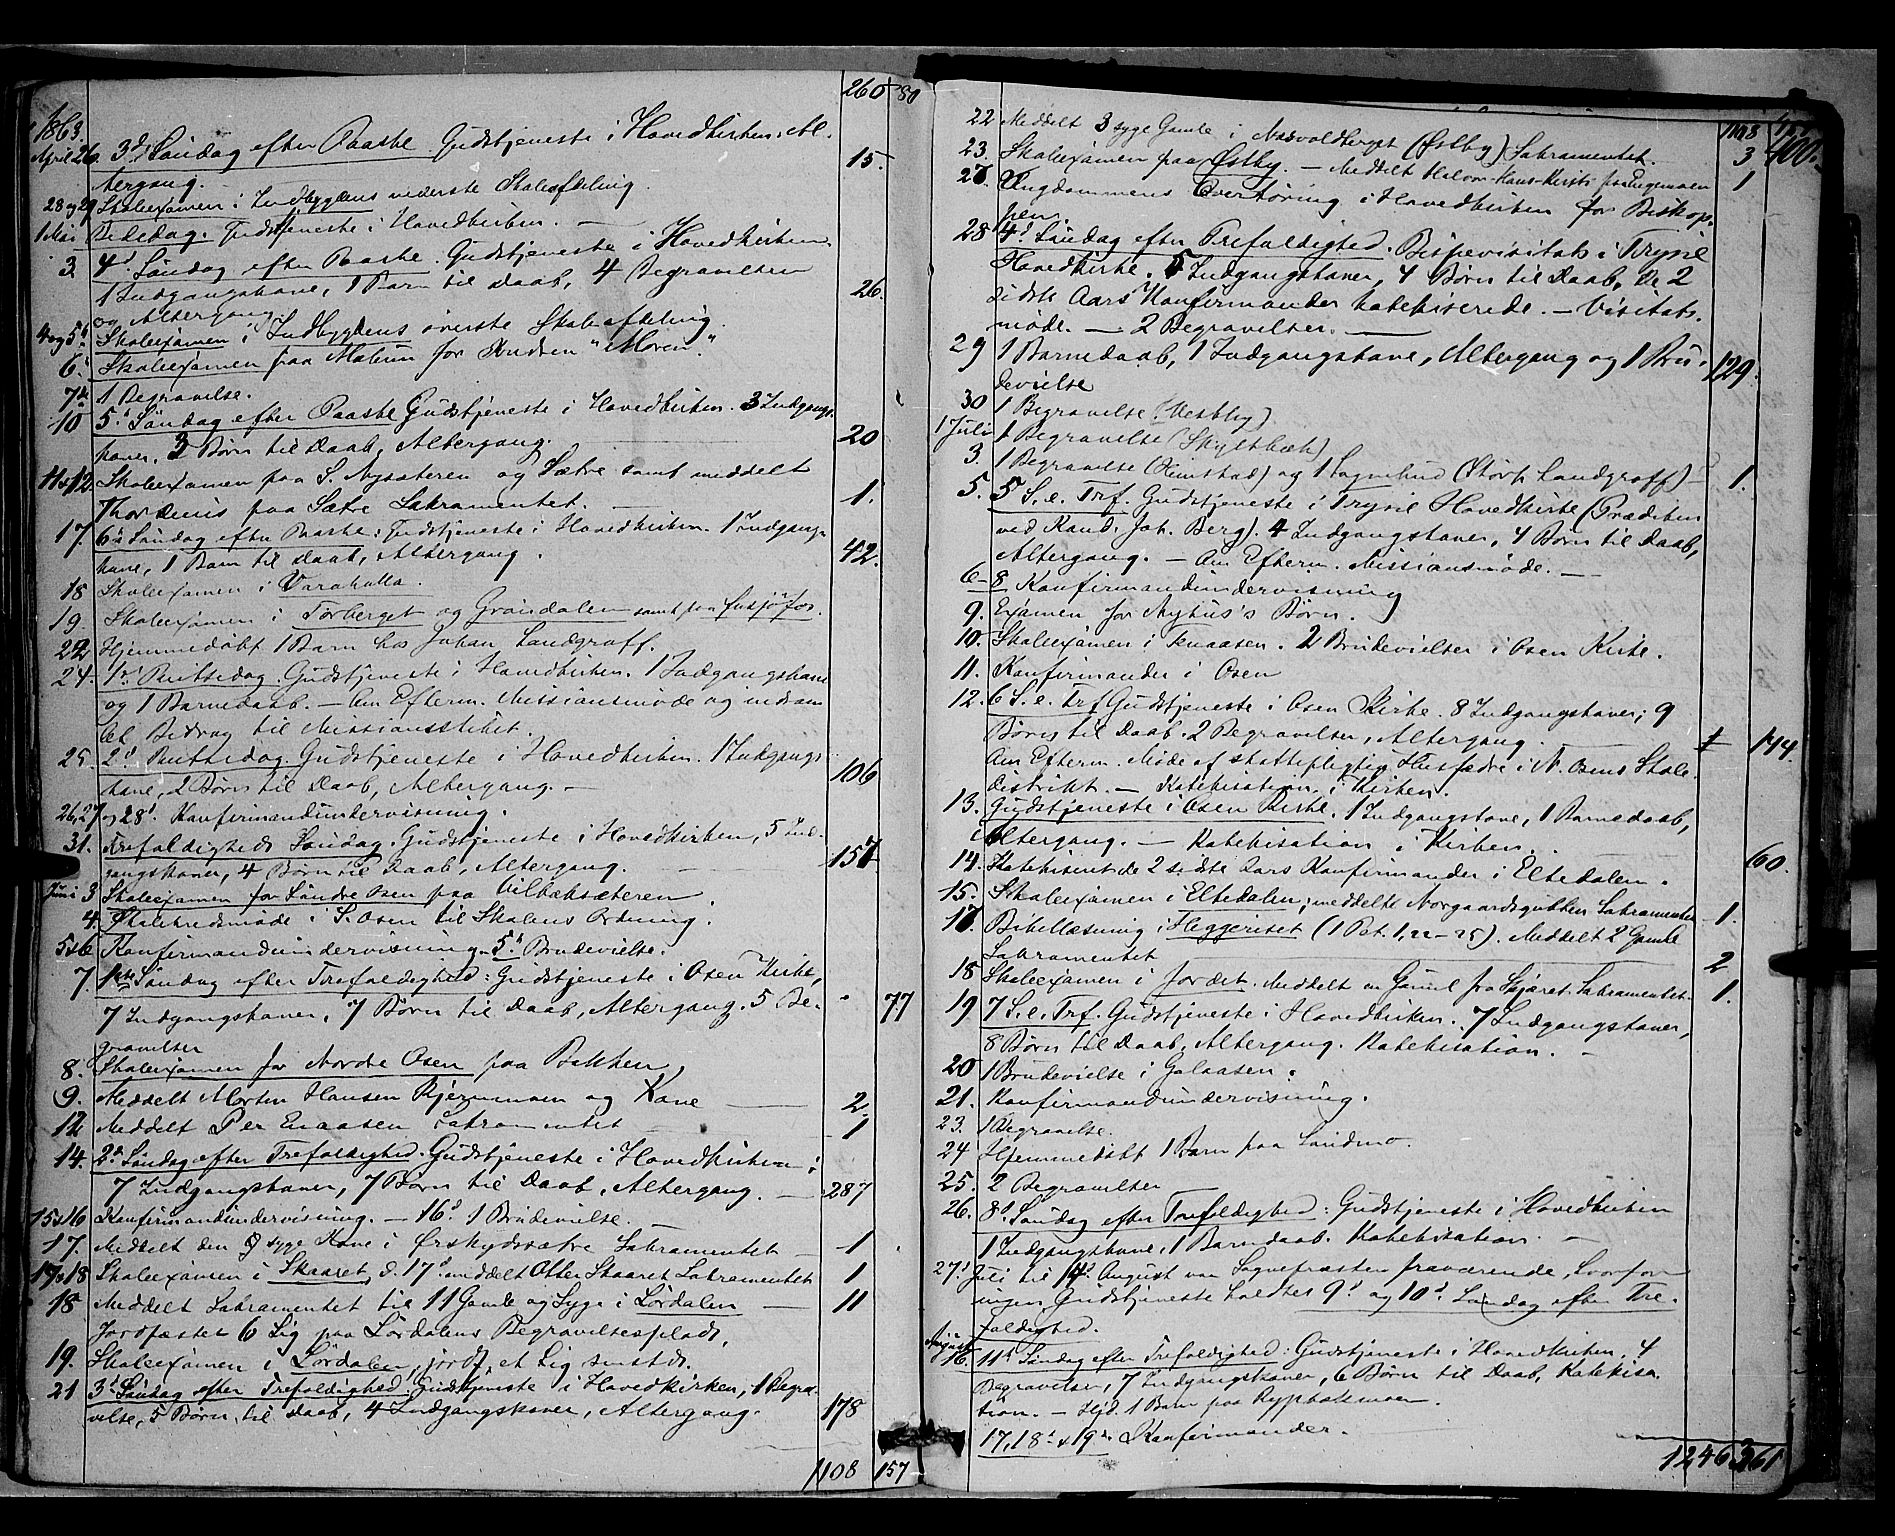 260 80
1863.
April 26. 3d Søndag efter Paaske. Gudstjeneste i Hovedkirken. Al-
tergang. 15
28 og 29 Skoleexamen i Indbygdens nederste Skoleafdeling.
1 Mai Bededag. Gudstjeneste i Hovedkirken.
3. 4d Søndag efter Paaske. Gudstjeneste i Hovedkirken.
1 Indgangskone, 1 Barn til Daab, 4 Begravelser
og Altergang. 26.
4 og 5d Skoleexamen i Indbygdens øverste Skoleafdeling.
6d Skoleexamen paa for Knudsen "Moren".
7de 1 Begravelse.
10 5d Søndag efter Paaske Gudstjeneste i Hovedkirken. 3 Indgangs-
koner, 3 Børn til Daab, Altergang. 20
11 & 12. Skoleexamen paa S. Nysæteren og Sætre samt meddelt
paa Sætre Sakramentet. 1.
17. 6te Søndag efter Paaske: Gudstjeneste i Hovedkirken. 1 Indgangs-
kone, 1 Barn til Daab, Altergang. 42.
18 Skoleexamen i Varaholla.
19. Skoleexamen i Torberget og Grøndalen samt paa
22 Hjemmedøbt 1 Barn hos Johan Landgraff.
24. 1ste Pintsedag. Gudstjeneste i Hovedkirken. 1 Indgangskone
og 1 Barnedaab. — Om Efterm. Missionsmøde og indsam-
let Bidrag til Missionsskibet.
25. 2d Pintsedag. Gudstjeneste i Hovedkirken. 1 Indgangs-
kone, 2 Børn til Daab, Altergang. — 106
26, 27 og 28d. Konfirmandundervisning.
31. Trefoldigheds Søndag. Gudstjeneste i Hovedkirken, 5 Ind-
gangskoner, 4 Børn til Daab, Altergang. 157
Juni 3 Skoleexamen for Søndre Osen paa Ulvaksæteren.
4. Skolekredsmøde i S. Osen til Skolens Ordning.
5 & 6 Konfirmandundervisning. 5d Brudevielse.
7. 1ste Søndag efter Trefoldighed: Gudstjeneste i Osen Kirke,
7 Indgangskoner, 7 Børn til Daab, Altergang. 5 Be- 77
gravelser
8. Skoleexamen for Nordre Osen paa Bakken.
9. Meddelt Morten Hansen og Kone 2.
12 Meddelt Per Enaasen Sakramentet 1
14. 2d Søndag efter Trefoldighed. Gudstjeneste i Hovedkirken;
7 Indgangskoner, 7 Børn til Daab, Altergang. — 287
15 & 16 Konfirmandundervisning. — 16d 1 Brudevielse.
17. Meddelt den syge Kone i Sakramentet 1
17 & 18 Skoleexamen i Skaaret, d. 17d meddelt Otter Skaaret Sakramentet 1
18 Meddelt Sakramentet til 11 Gamle og Syge i Lørdalen 11
Jordfæstet 6 Lig paa Lørdalens Begravelsesplads.
19. Skoleexamen i Lørdalen, jordf. et Lig smstds.
21 3d Søndag efter Trefoldighed. Gudstjeneste i Hovedkirken, 1 Begra-
velse, 5 Børn til Daab, 4 Indgangskoner, Altergang. 178
1108 157
22 Meddelt 3 syge Gamle i (Østby) Sakramentet. 3
23. Skoleexamen paa Østby. — Meddelt 1
27. Ungdommens Overhøring i Hovedkirken for Biskop-
pen.
28 4d Søndag efter Trefoldighed. Bispevisitats i Trysil
Hovedkirke. 5 Indgangskoner, 4 Børn til Daab, De 2
sidste Aars Konfirmander katekiserede. — Visitats-
møde. — 2 Begravelser.
29 1 Barnedaab, 1 Indgangskone, Altergang og 1 Bru- 129.
devielse
30 1 Begravelse (Vestby)
1 Juli 1 Begravelse (Skyltbæk)
3. 1 Begravelse (Hemstad) og 1 Sognebud Landgraff) 1.
5. 5 S. e. Trf. Gudstjeneste i Trysil Hovedkirke (Prædiken
ved Kand. Joh. Berg). 4 Indgangskoner, 4 Børn til Daab,
Altergang. — Om Efterm. Missionsmøde.
6–8 Konfirmandundervisning
9. Examen for Nyhus's Børn.
10. Skoleexamen i Enaasen. 2 Brudevielser i Osen Kirke.
11. Konfirmander i Osen
12. 6 S. e. Trf. Gudstjeneste i Osen Kirke. 8 Indgangskoner; 9
Børn til Daab. 2 Begravelser, Altergang. 144.
Om Efterm. Møde af skattepligtige Husfædre i N. Osens Skole-
distrikt. — Katekisation i Kirken.
13. Gudstjeneste i Osen Kirke. 1 Indgangskone, 1 Barnedaab,
Altergang. — Katekisation i Kirken. 60.
14. Katekiseret de 2 sidste Aars Konfirmander i Eltedalen.
15. Skoleexamen i Eltedalen; meddelte Norgaardsgubben Sakramentet 1.
17. Bibellæsning i Heggeriset (1 Pet. 1, 22–25). Meddelt 2 Gamle
Sakramentet 2
18 Skoleexamen i Jordet. Meddelt en Gamel fra Sakramentet. 1.
19 7 S. e. Trf. Gudstjeneste i Hovedkirken. 7 Indgangskoner,
8 Børn til Daab, Altergang. Katekisation.
20 1 Brudevielse i Galaasen.
21. Konfirmandundervisning.
23. 1 Begravelse.
24 Hjemmedøbt 1 Barn paa Sandmo.
25. 2 Begravelser
26. 8d Søndag efter Trefoldighed: Gudstjeneste i Hovedkirken
1 Indgangskone, 1 Barnedaab. Katekisation.
27d Juli til 14d August var Sognepresten fraværende, hvorfor
ingen Gudstjeneste holdtes 9d og 10d Søndag efter Tre-
foldighed.
August 16. 11d Søndag efter Trefoldighed: Gudstjeneste i Hovedkirken, 4
Begravelser, 7 Indgangskoner, 6 Børn til Daab, Katekisa-
tion. — Hjd. 1 Barn paa
17, 18d & 19de Konfirmander.
1246 361